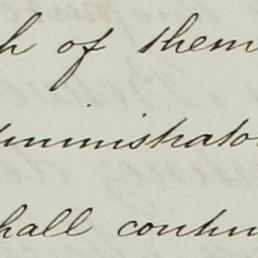 h of them
dministrato
hall continu